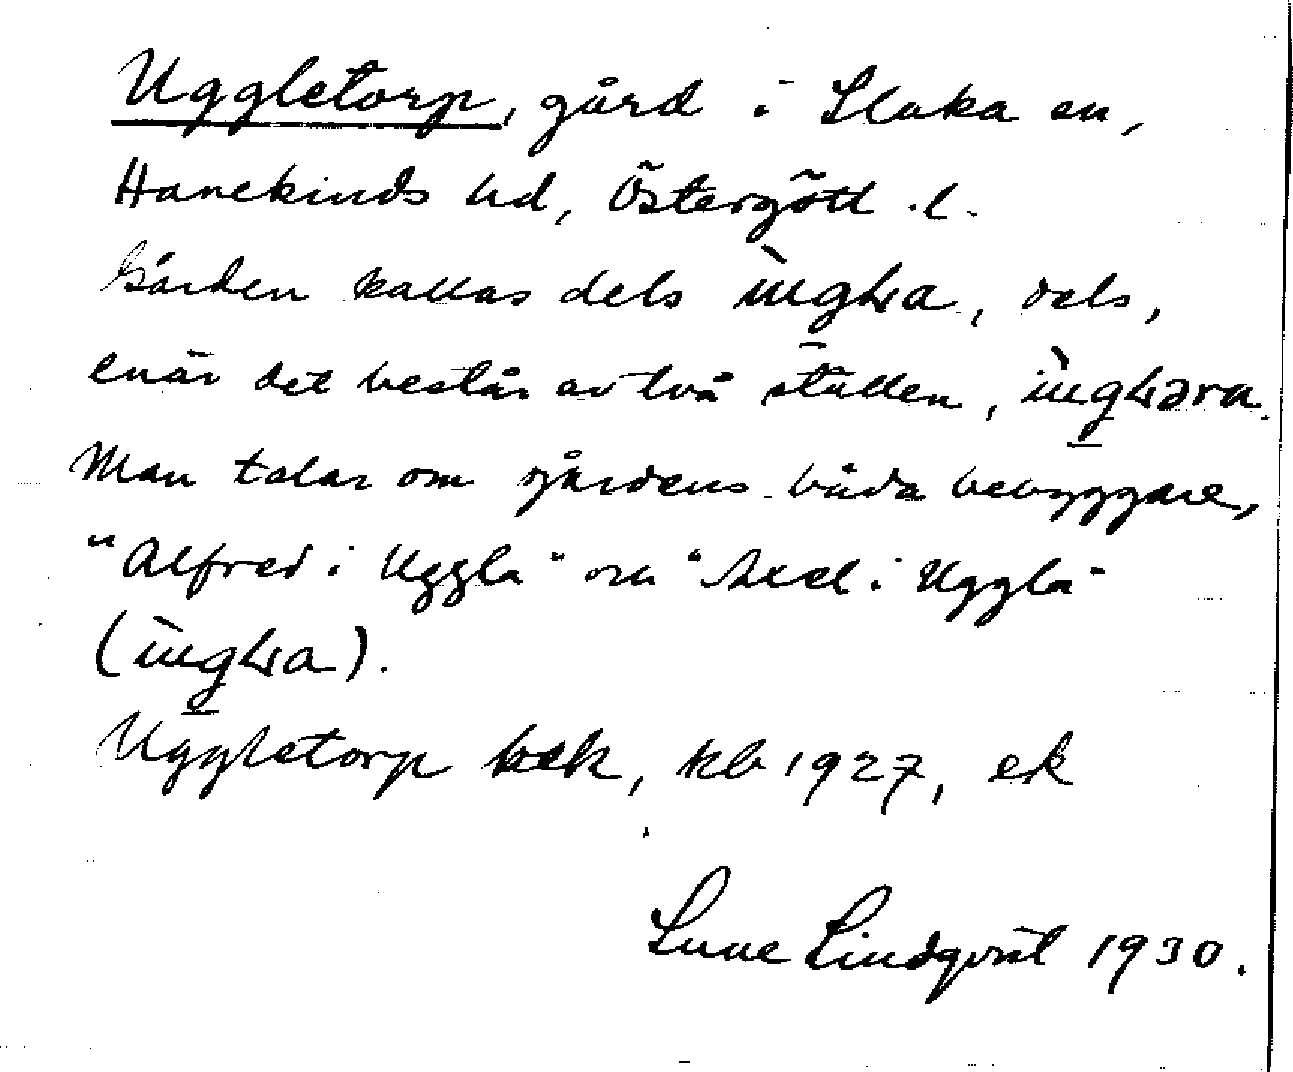 Uggletorp, gård i Slaka sn,
Hanekinds hd, Östergötl. l.
Gården kallas dels ùgla, dels,
enär det består av två ställen, ùgləra.
Man talar om gårdens båda bebyggare,
"Alfred i Uggla" och "Axel i Uggla"
(ùgla).
Uggletorp kek, kb 1927, ek
Sune Lindqvist 1930.